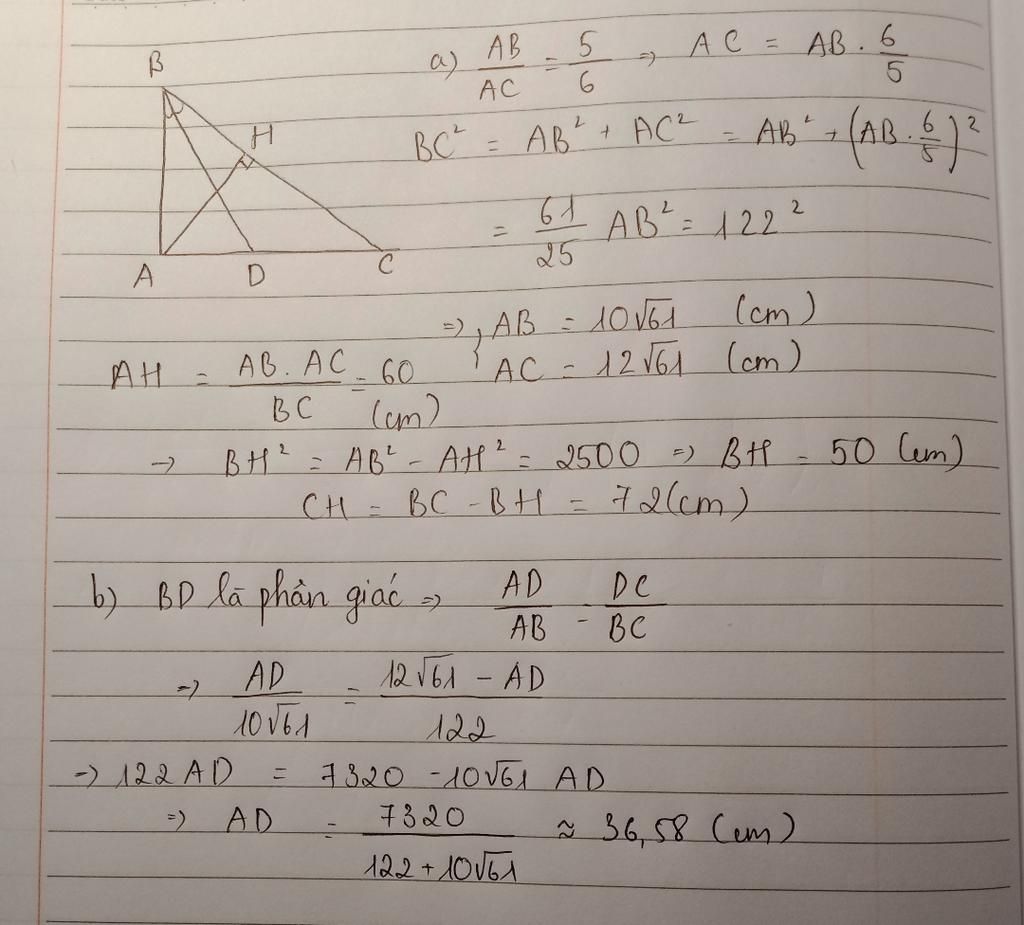 B
H
A D C
a) AB/AC = 5/6 => AC = AB . 6/5
BC² = AB² + AC² = AB² + (AB . 6/5)²
= 61/25 AB² = 122²
=> { AB = 10√61 (cm)
AC = 12√61 (cm)
AH = AB . AC/BC = 60 (cm)
→ BH² = AB² - AH² = 2500 => BH = 50 (cm)
CH = BC - BH = 72 (cm)
b) BD là phân giác => AD/AB = DC/BC
=> AD/10√61 = 12√61 - AD/122
=> 122 AD = 7320 - 10√61 AD
=> AD = 7320/122 + 10√61 ≈ 36,58 (cm)